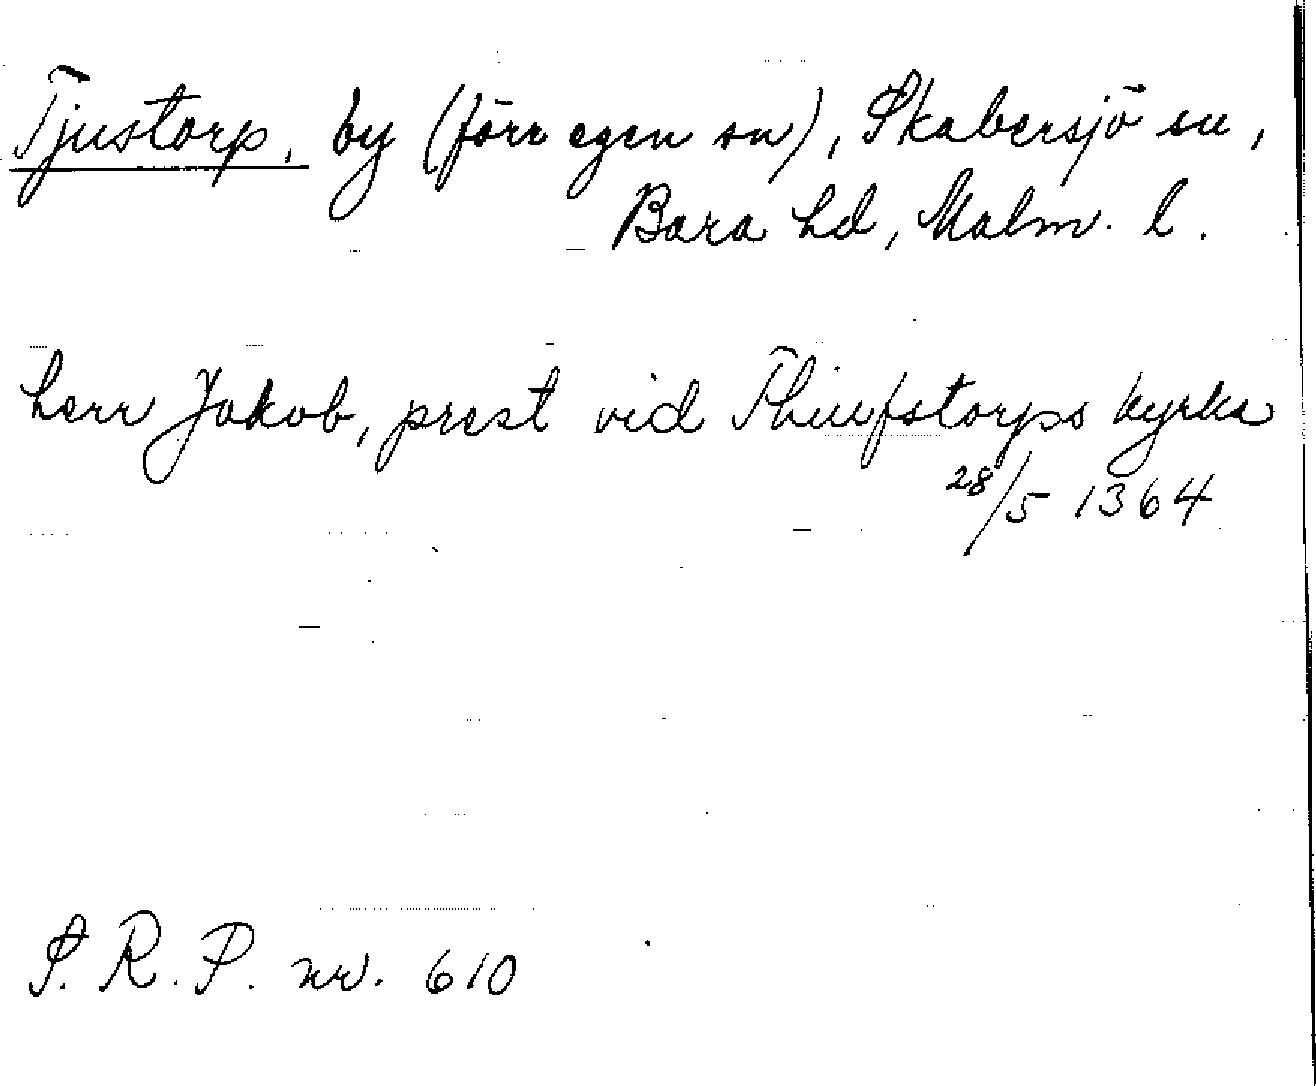 Tjustorp, by (förr egen sn), Skabersjö sn,
Bara hd, Malm. l.
herr Jakob, prest vid Thiufstorps kyrka
28/5 1364
S. R. P. nr. 610